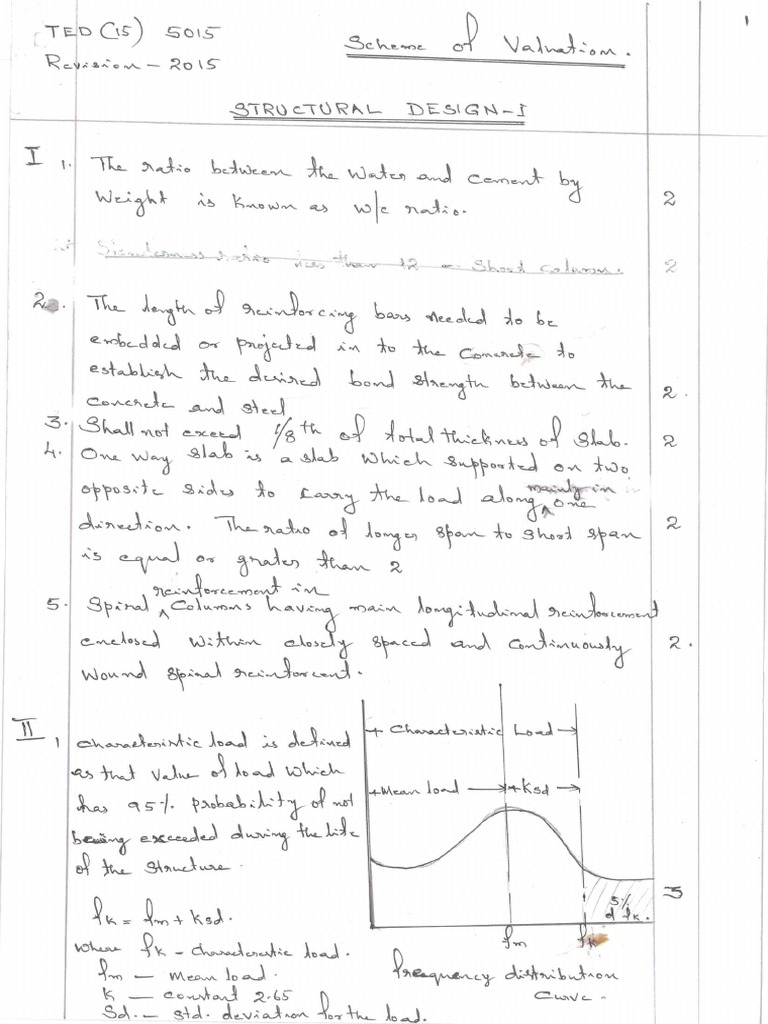 1
TED (15) 5015
Scheme of Valuation.
Revision - 2015
STRUCTURAL DESIGN-I
I 1. The ratio between the Water and cement by
Weight is known as w/c ratio. 2
Slenderness ratio less than 12 - Short Column. 2
2. The length of reinforcing bars needed to be
embedded or projected in to the concrete to
establish the desired bond strength between the
concrete and steel 2.
3. Shall not exceed 1/8th of total thickness of Slab. 2
4. One way slab is a slab which supported on two
opposite sides to carry the load along mainly in one
direction. The ratio of longer span to short span 2
is equal or grater than 2
5. Spiral reinforcement in Columns having main longitudinal reinforcement
enclosed within closely spaced and continuously 2.
wound spiral reinforcent.
II 1 Characteristic load is defined
as that value of load which
has 95% probability of not
being exceeded during the life
of the structure.
fk = fm + Ksd.
where fk - characteristic load.
fm — Mean load.
K — constant 2.65
Sd. — Std. deviation for the load.
Characteristic Load
Mean load Ksd
3
5%
of fk.
fm fk
frequency distribution
curve.